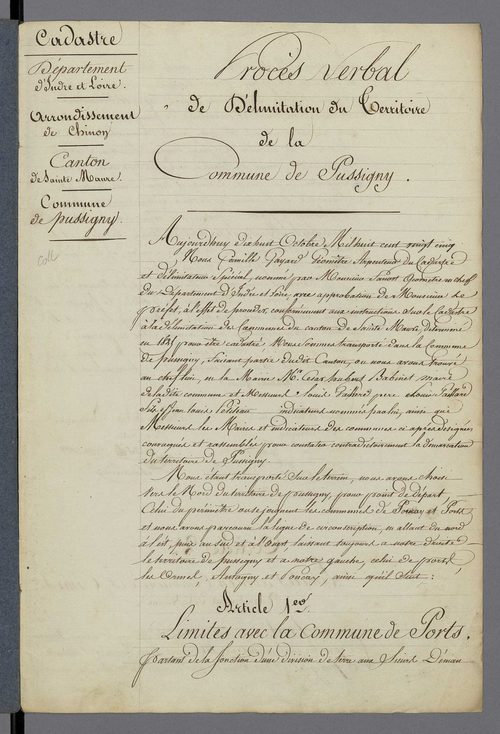 Cadastre
Département
d'Indre et Loire.
Arrondissement
de Chinon
Canton
de Sainte Maure.
Commune
de pussigny.
Procès Verbal
de Délimitation du Territoire
de la
Commune de Pussigny.
Aujourd'huy dixhuit Octobre Mil huit cent vingt cinq
Nous Camille Géomètre Arpenteur du Cadastre
et délimitateur Spécial, nommé par Monsieur Géomètre en chef
du Département d'Indre et Loire, avec approbation de Monsieur le
préfet, à l'effet de procéder conformément aux instructions sur le Cadastre
à la délimitation de Communes du canton de Sainte Maure, déterminé
pour être cadastré Nous Sommes transporté dans la Commune
de pussigny, faisant partie dudit Canton, ou nous avons trouvé
au chef lieu, en la Mairie Mr. Cesar Babinet maire
de ladite commune et Messieurs Louis pere, Louis
fils et Jean Louis indicateurs nommés par lui, ainsi que
Messieurs les Maires et indicateurs des communes ci après désignées
convoqués et rassemblés pour constater contradictoirement la démarcation
du territoire de Pussigny.
Nous étant transporté sur le terrein, nous avons choisi
vers le Nord du territoire de pussigny, pour point de départ
Celui du périmètre ou se joignent les communes de et Ports
et nous avons parcouru la ligne de circonscription, en allant du nord
à l'est, puis au sud et à l'Ouest, laissant toujours à notre droite
le territoire de pussigny et à notre gauche, celui de ports,
les Ormes, Antogny et ainsi qu'il suit:
Article 1er.
Limites avec la Commune de Ports.
partant de la division de terre aux Sieurs